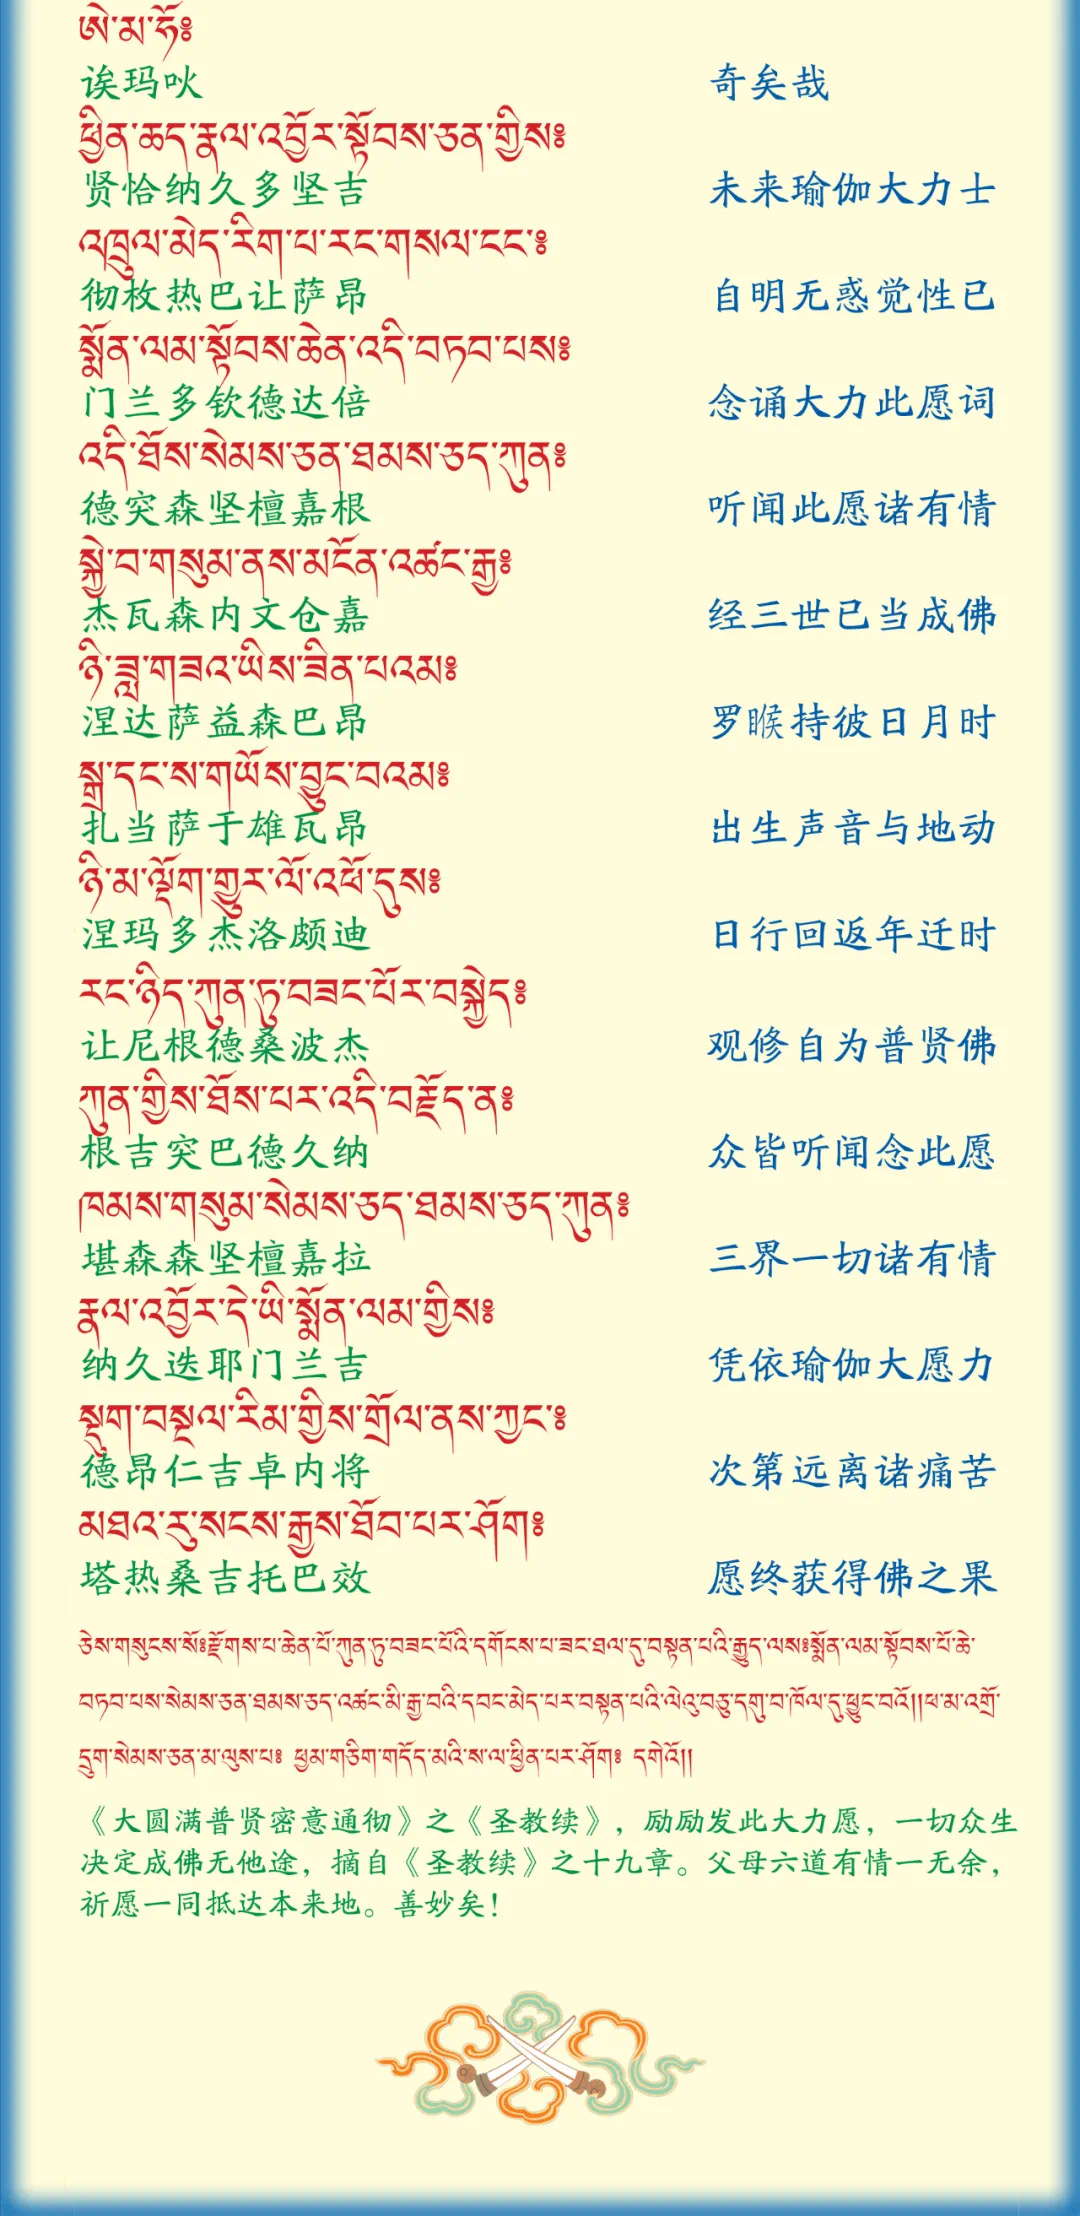 ཨེ་མ་ཧོ༔
诶玛吙 奇矣哉
ཕྱིན་ཆད་རྣལ་འབྱོར་སྟོབས་ཅན་གྱིས༔
贤恰纳久多坚吉 未来瑜伽大力士
འཁྲུལ་མེད་རིག་པ་རང་གསལ་ངང་༔
彻枚热巴让萨昂 自明无惑觉性已
སྨོན་ལམ་སྟོབས་ཆེན་འདི་བཏབ་པས༔
门兰多钦德达倍 念诵大力此愿词
འདི་ཐོས་སེམས་ཅན་ཐམས་ཅད་ཀུན༔
德突森坚檀嘉根 听闻此愿诸有情
སྐྱེ་བ་གསུམ་ནས་མངོན་འཚང་རྒྱ༔
杰瓦森内文仓嘉 经三世已当成佛
ཉི་ཟླ་གཟའ་ཡིས་ཟིན་པའམ༔
涅达萨益森巴昂 罗睺持彼日月时
སྒྲ་དང་ས་གཡོས་བྱུང་བའམ༔
扎当萨于雄瓦昂 出生声音与地动
ཉི་མ་ལྡོག་གྱུར་ལོ་འཕོ་དུས༔
涅玛多杰洛颇迪 日行回返年迁时
རང་ཉིད་ཀུན་ཏུ་བཟང་པོར་བསྐྱེད༔
让尼根德桑波杰 观修自为普贤佛
ཀུན་གྱིས་ཐོས་པར་འདི་བརྗོད་ན༔
根吉突巴德久纳 众皆听闻念此愿
ཁམས་གསུམ་སེམས་ཅད་ཐམས་ཅད་ཀུན༔
堪森森坚檀嘉拉 三界一切诸有情
རྣལ་འབྱོར་དེ་ཡི་སྨོན་ལམ་གྱིས༔
纳久迭耶门兰吉 凭依瑜伽大愿力
སྡུག་བསྔལ་རིམ་གྱིས་གྲོལ་ནས་ཀྱང་༔
德昂仁吉卓内将 次第远离诸痛苦
མཐའ་རུ་སངས་རྒྱས་ཐོབ་པར་ཤོག༔
塔热桑吉托巴效 愿终获得佛之果
ཅེས་གསུངས་སོ༔རྫོགས་པ་ཆེན་པོ་ཀུན་ཏུ་བཟང་པོའི་དགོངས་པ་ཟང་ཐལ་དུ་བསྟན་པའི་རྒྱུད་ལས༔སྨོན་ལམ་སྟོབས་པོ་ཆེ་
བཏབ་པས་སེམས་ཅན་ཐམས་ཅད་འཚང་མི་རྒྱ་བའི་དབང་མེད་པར་བསྟན་པའི་ལེའུ་བཅུ་དགུ་བ་ཁོལ་དུ་ཕྱུང་བའོ།།ཕ་མ་འགྲོ་
དྲུག་སེམས་ཅན་མ་ལུས་པ༔ ཕྱམ་གཅིག་གདོད་མའི་ས་ལ་ཕྱིན་པར་ཤོག༔ དགེའོ།།
《大圆满普贤密意通彻》之《圣教续》，励励发此大力愿，一切众生
决定成佛无他途，摘自《圣教续》之十九章。父母六道有情一无余，
祈愿一同抵达本来地。善妙矣！